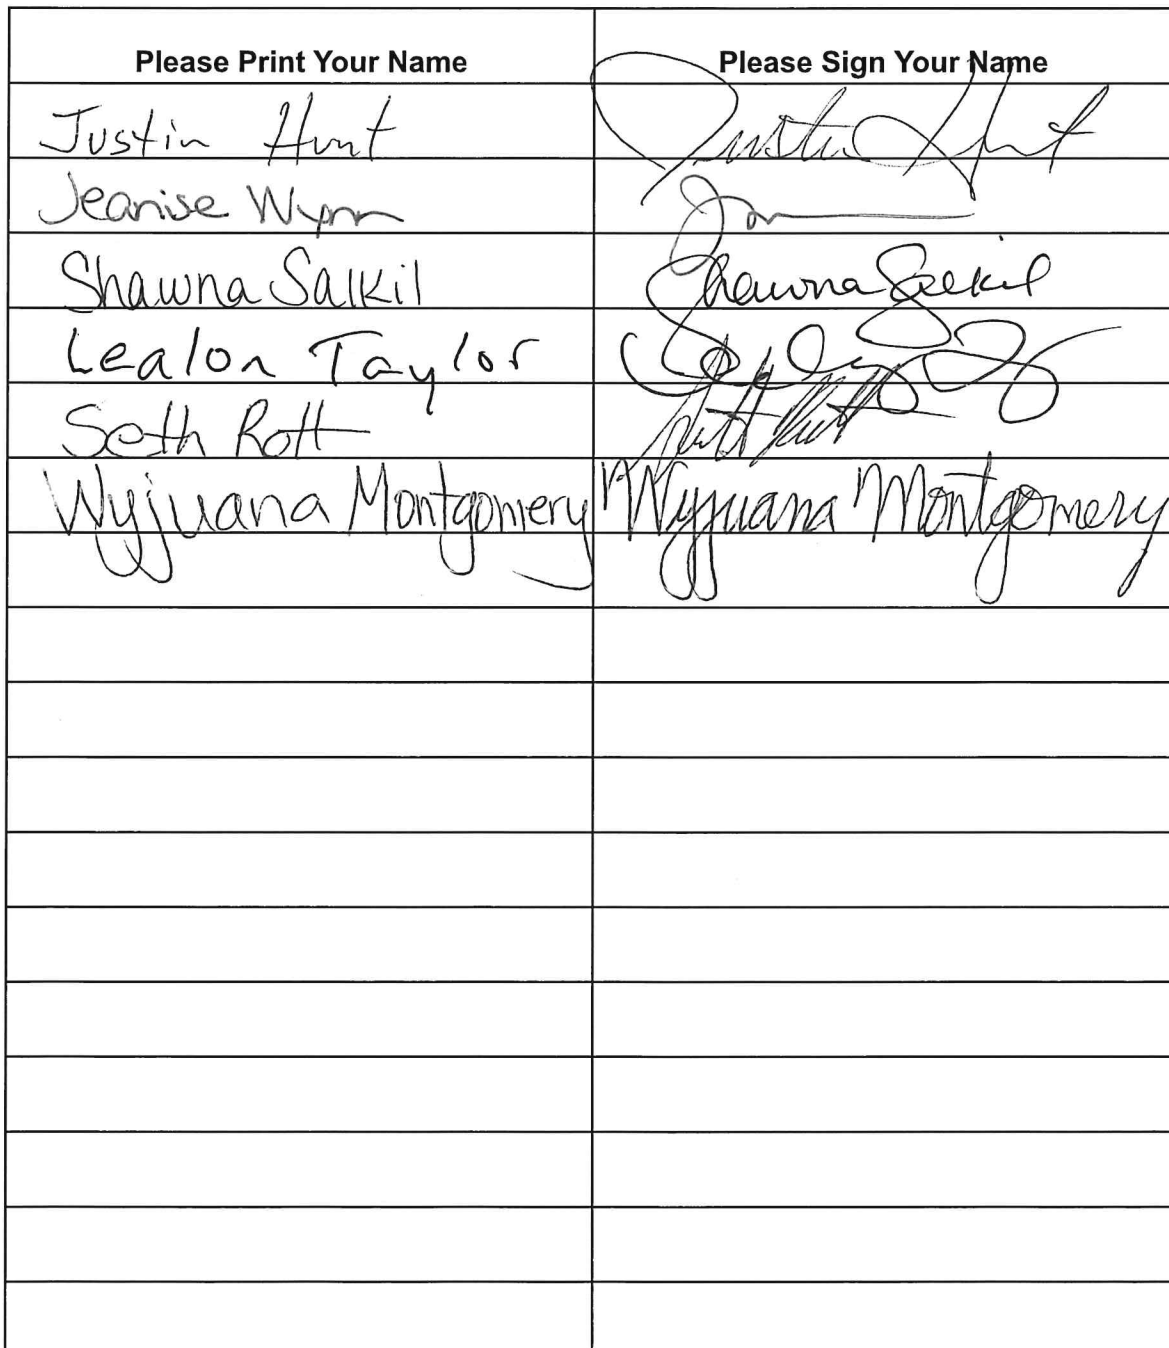 Please Print Your Name Please Sign Your Name
Justin Hunt Justin Hunt
Jeanise Wynn
Shawna Salkil Shawna Salkil
Lealon Taylor
Seth Rott Seth Rott
Wyjuana Montgomery Wyjuana Montgomery